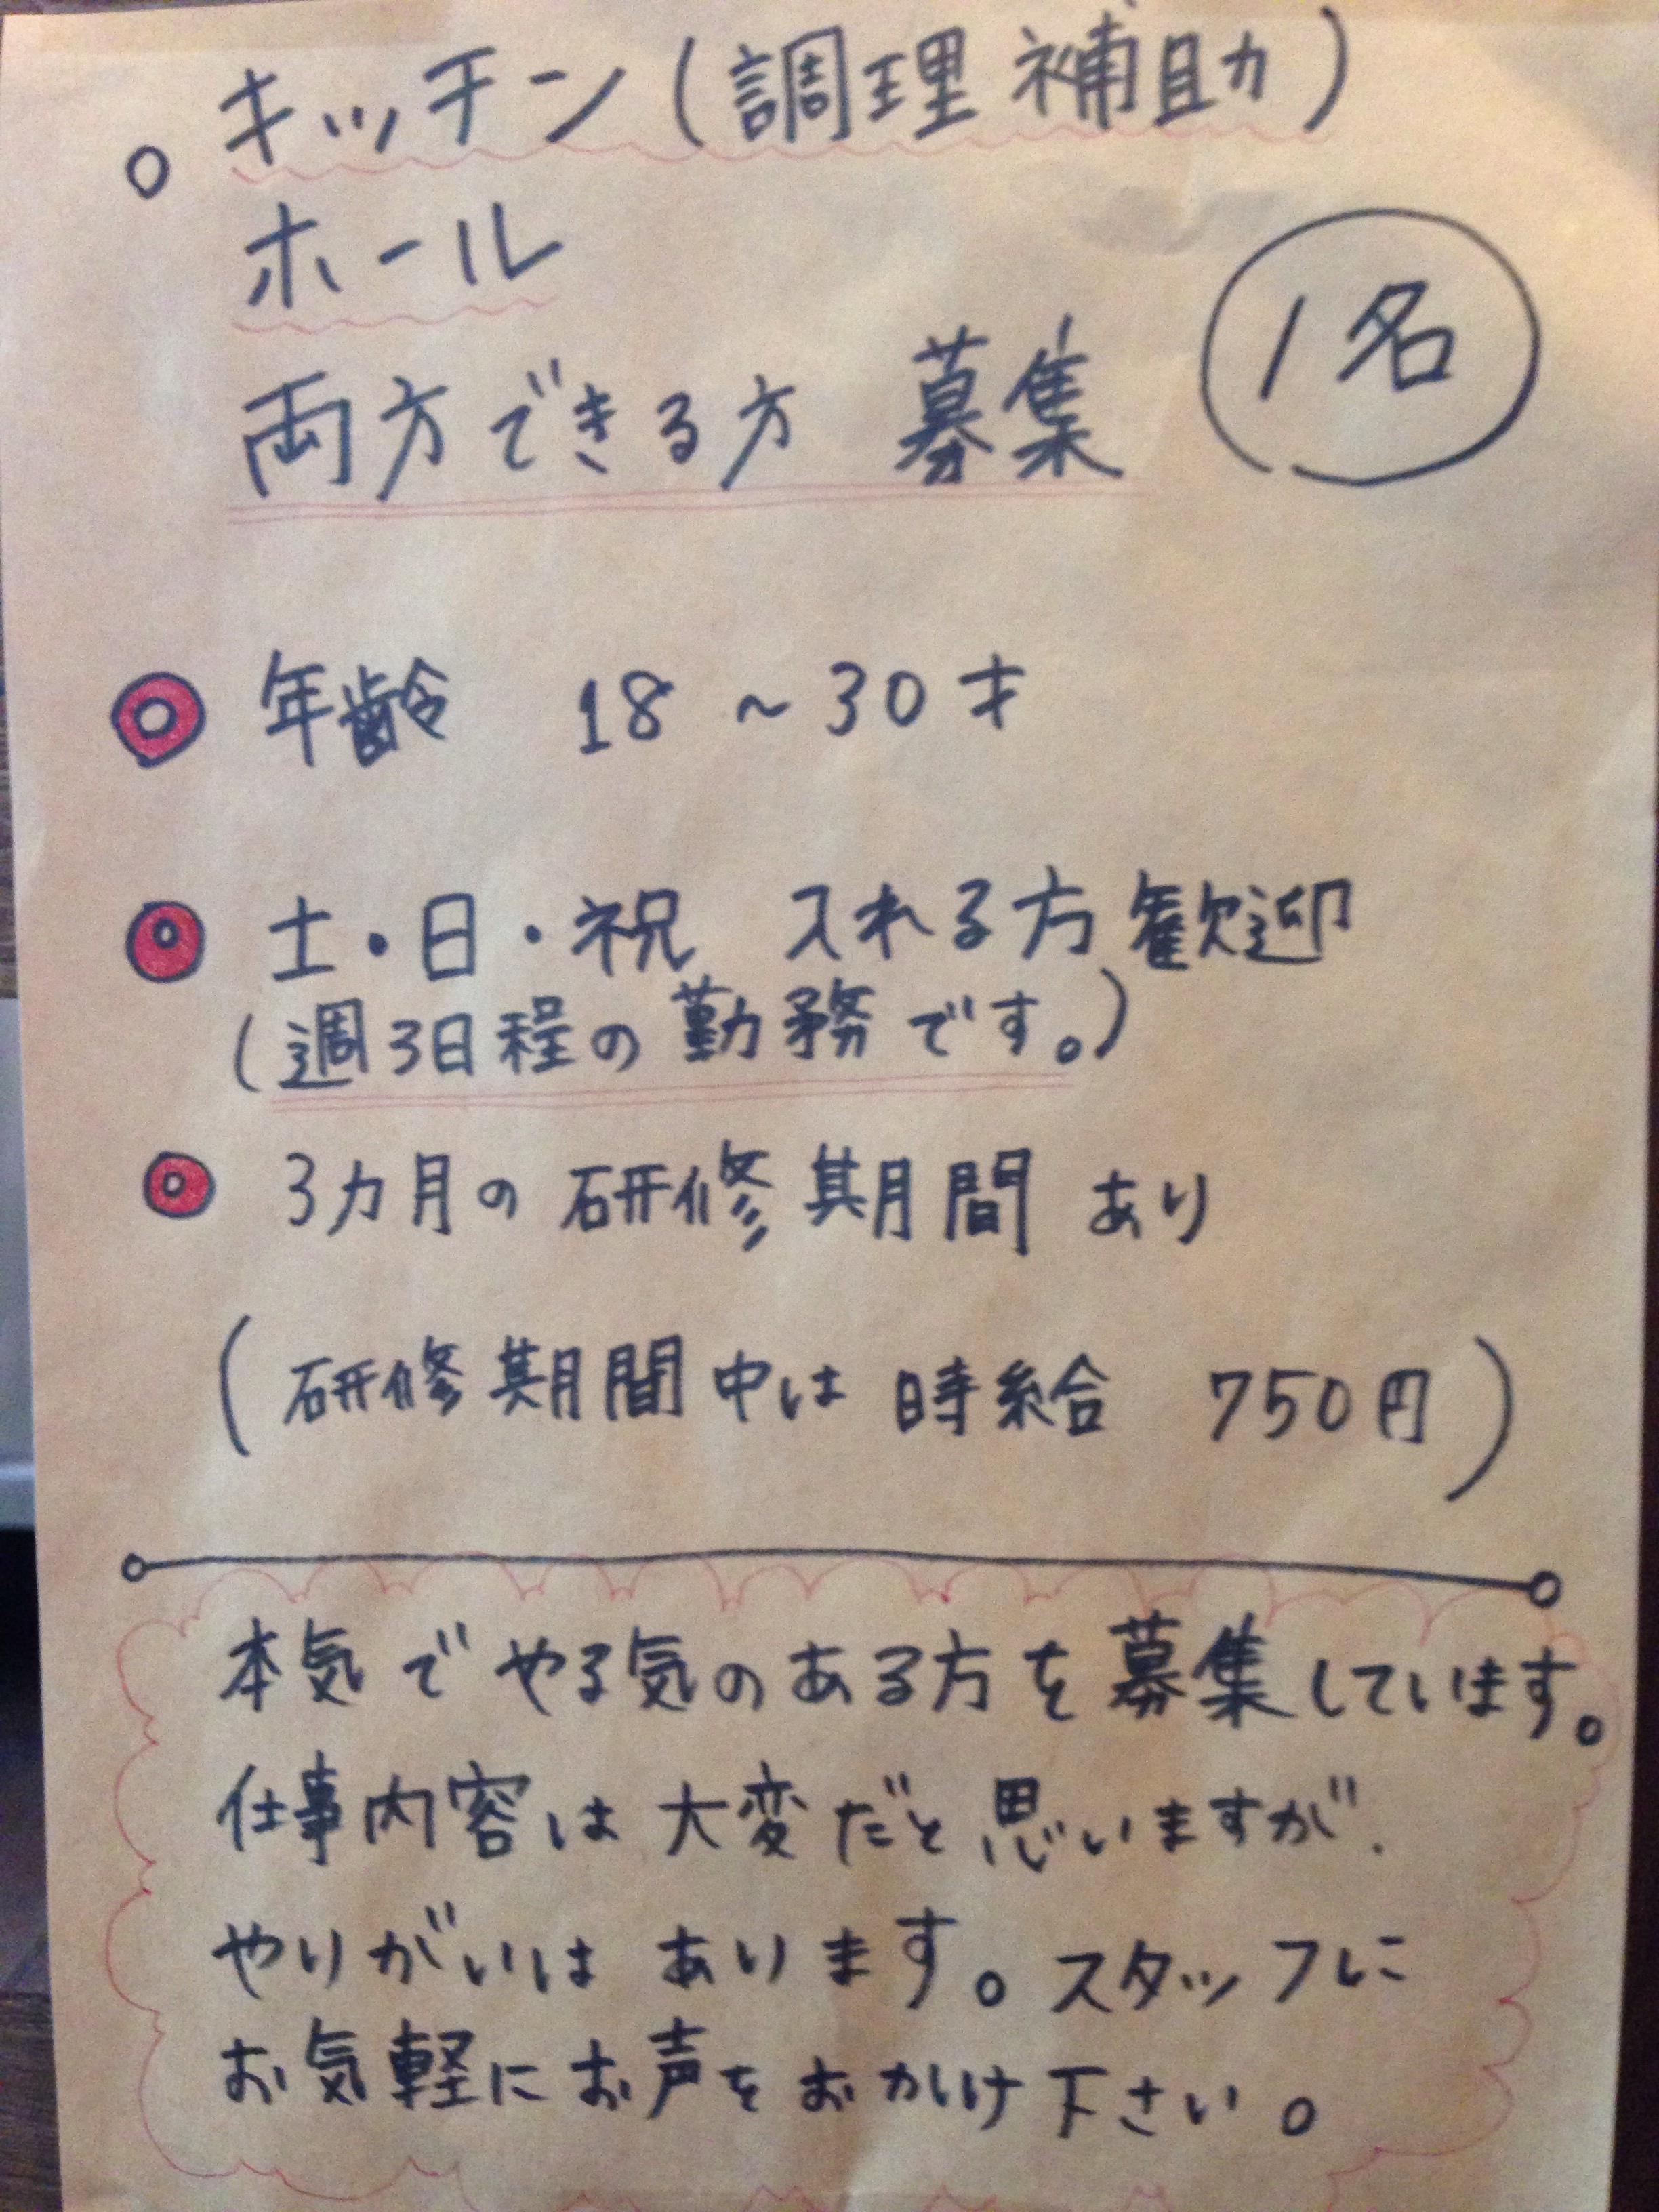 キッチン(調理補助)
ホール
両方できる方 募集
1名
年齢 18 ~ 30才
土・日・祝 入れる方歓迎
(週3日程の勤務です。)
3カ月の研修期間あり
(研修期間中は時給 750円)
本気でやる気のある方を募集しています。
仕事内容は大変だと思いますが、
やりがいはあります。スタッフに
お気軽にお声をおかけ下さい。